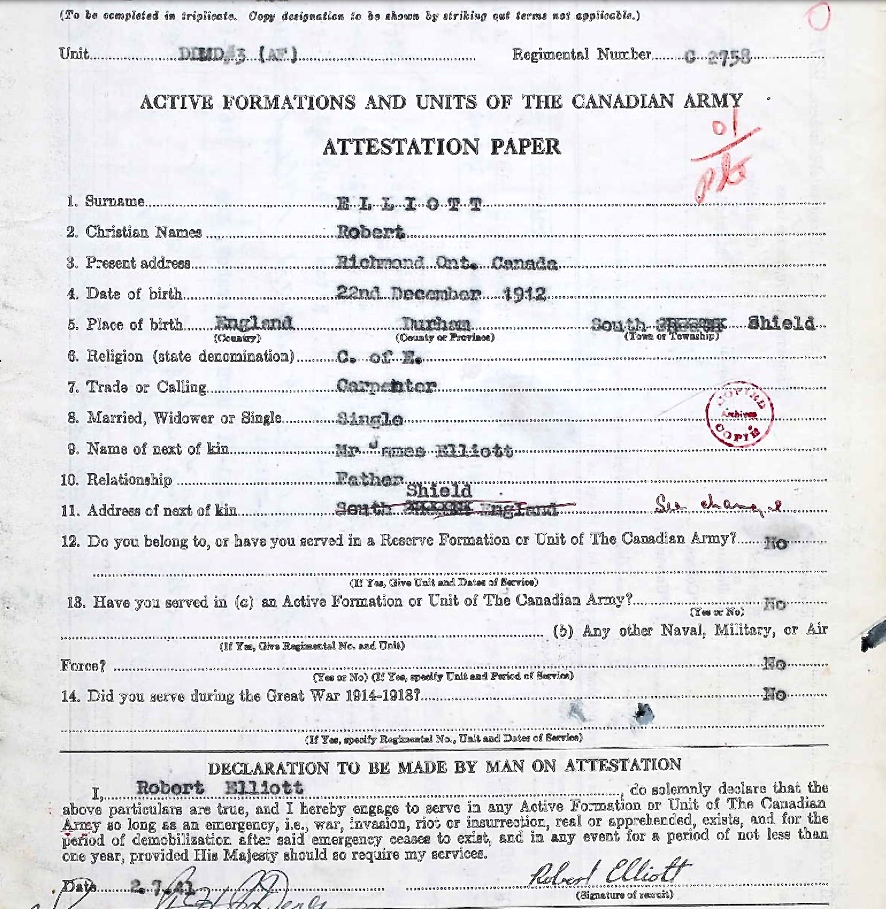 (To be completed in triplicate. Copy designation to be shown by striking out terms not applicable.)
Unit DIMD#3 (AF) Regimental Number C 2758
ACTIVE FORMATIONS AND UNITS OF THE CANADIAN ARMY
ATTESTATION PAPER
01
Pte
1. Surname ELLIOTT
2. Christian Names Robert
3. Present address Richmond Ont. Canada
4. Date of birth 22nd December 1912
5. Place of birth England Durham South Shield
(Country) (County or Province) (Town or Township)
6. Religion (state denomination) C. of E.
7. Trade or Calling Carpenter
8. Married, Widower or Single Single
COPIED Archives COPIÉ
9. Name of next of kin Mr James Elliott
10. Relationship Father
Shield
11. Address of next of kin South England See change
12. Do you belong to, or have you served in a Reserve Formation or Unit of The Canadian Army? No
(If Yes, Give Unit and Dates of Service)
13. Have you served in (a) an Active Formation or Unit of The Canadian Army? No
(Yes or No)
(b) Any other Naval, Military, or Air
(If Yes, Give Regimental No. and Unit)
Force? No
(Yes or No) (If Yes, specify Unit and Period of Service)
14. Did you serve during the Great War 1914-1918? No
(If Yes, specify Regimental No., Unit and Dates of Service)
DECLARATION TO BE MADE BY MAN ON ATTESTATION
I, Robert Elliott, do solemnly declare that the
above particulars are true, and I hereby engage to serve in any Active Formation or Unit of The Canadian
Army so long as an emergency, i.e., war, invasion, riot or insurrection, real or apprehended, exists, and for the
period of demobilization after said emergency ceases to exist, and in any event for a period of not less than
one year, provided His Majesty should so require my services.
Date 2.7.41 Robert Elliott
(Signature of recruit)